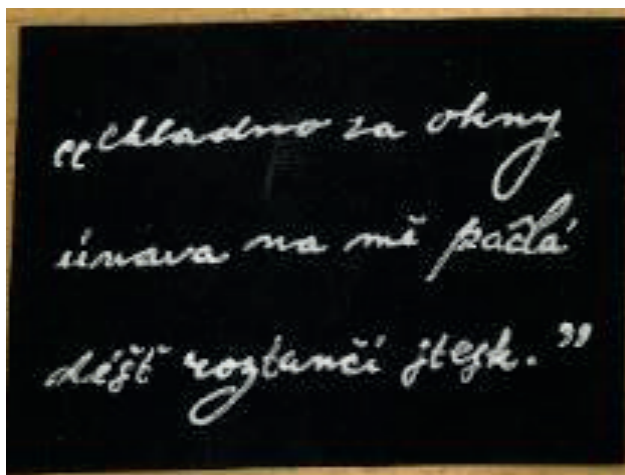 “chladno za okny
únava na mě padá
déšť roztančí stesk.”